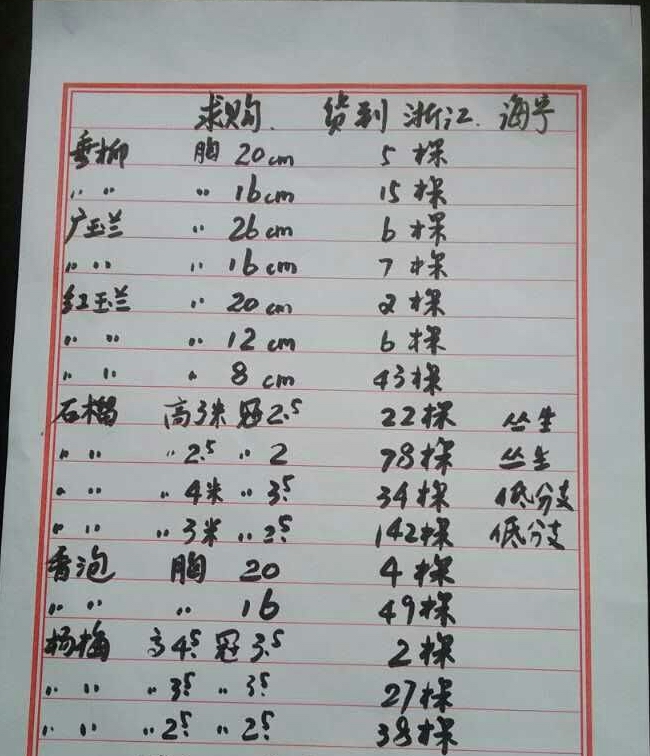 求购. 货到 浙江. 海宁
垂柳 胸 20cm 5棵
〃 〃 〃 16cm 15棵
广玉兰 〃 26cm 6棵
〃 〃 〃 16cm 7棵
红玉兰 〃 20cm 2棵
〃 〃 〃 12cm 6棵
〃 〃 〃 8cm 43棵
石榴 高3米 冠2.5 22棵 丛生
〃 〃 〃2.5 〃 2 78棵 丛生
〃 〃 〃4米 〃 3.5 34棵 低分支
〃 〃 〃3米 〃 2.5 142棵 低分支
香泡 胸 20 4棵
〃 〃 〃 16 49棵
杨梅 高4.5 冠3.5 2棵
〃 〃 〃3.5 〃 3.5 27棵
〃 〃 〃2.5 〃 2.5 38棵